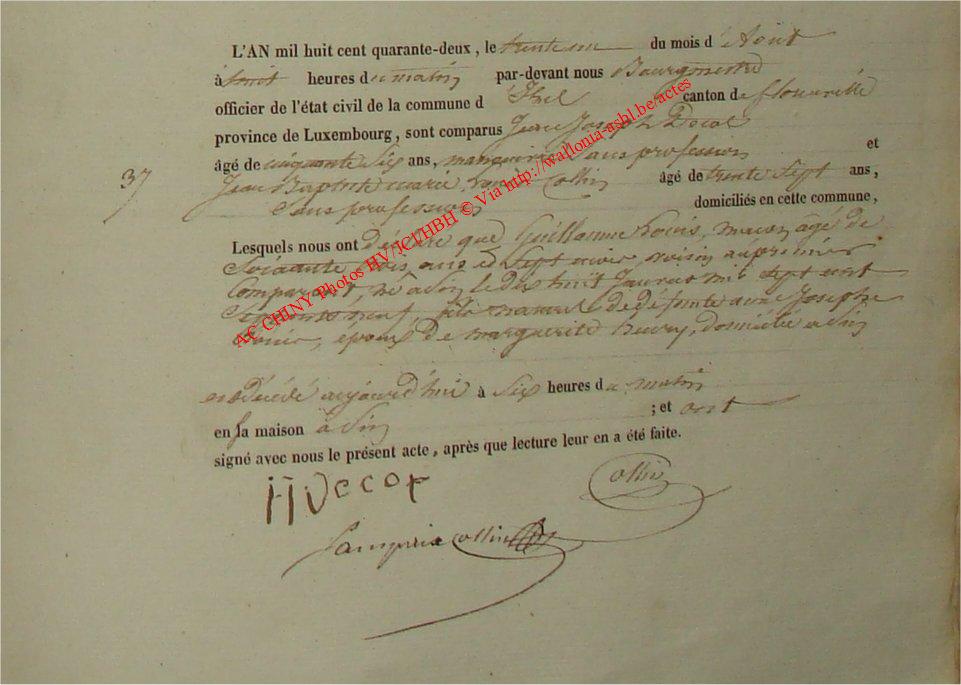 L'AN mil huit cent quarante-deux, le trente un du mois d'Aout
à huit heures du matin par-devant nous Bourgmestre
officier de l'état civil de la commune d'Izel canton de florenville
province de Luxembourg, sont comparus Jean Joseph
âgé de cinquante Six ans, sans profession et
37
Jean Baptiste marie Collin âgé de trente Sept ans,
Sans profession domiciliés en cette commune,
Lesquels nous ont déclaré que Guillaume Louis, âgé de
Soixante trois ans et Sept mois, voisin au premier
Comparant, né à le dix huit Janvier mil sept cent
neuf, fils naturel de defunte Josephe
, epoux de marguerite henry, domicilié à
est Décédé aujourd'hui à Six heures du matin
en sa maison à ; et ont
signé avec nous le présent acte, après que lecture leur en a été faite.
Collin
Collin
AC CHINY Photos HV/JCI/HBH © Via http://wallonia-asbl.be/actes